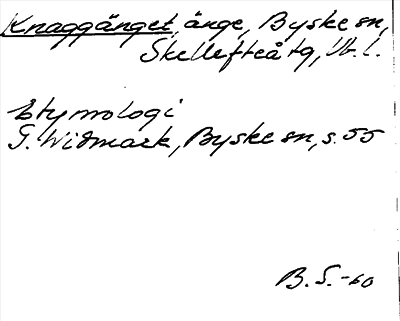 Knaggänget, änge, Byske sn,
Skellefteå tg, Vb. l.
Etymologi
G. Widmark, Byske sn, s. 55
B. S. -60